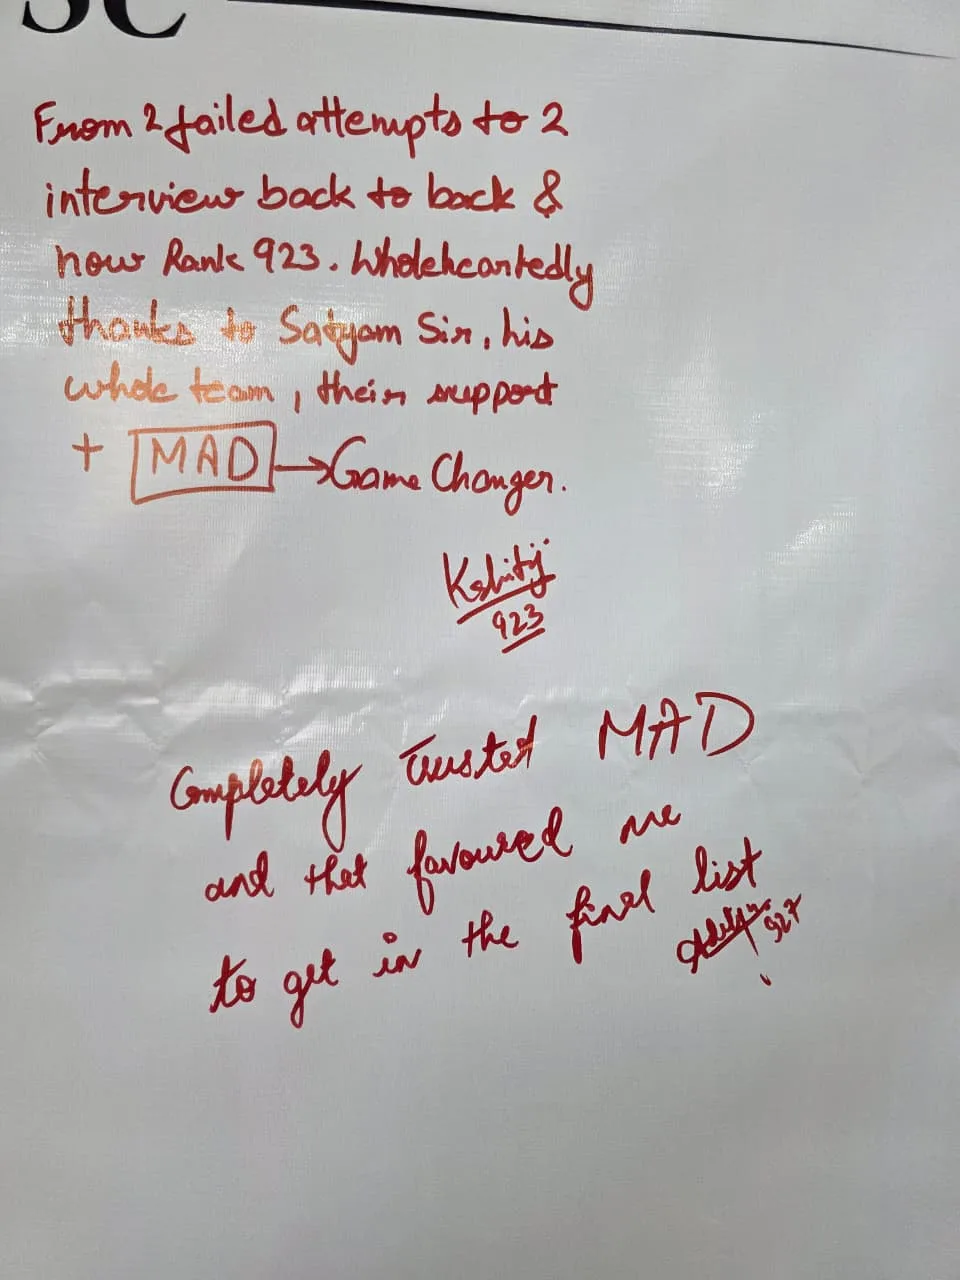 SC
From 2 failed attempts to 2
interview back to back &
now Rank 923. Wholeheartedly
thanks to Satyam Sir, his
whole team, their support
+ MAD → Game Changer.
Kshitij
923
Completely trusted MAD
and that favoured me
to get in the final list
927